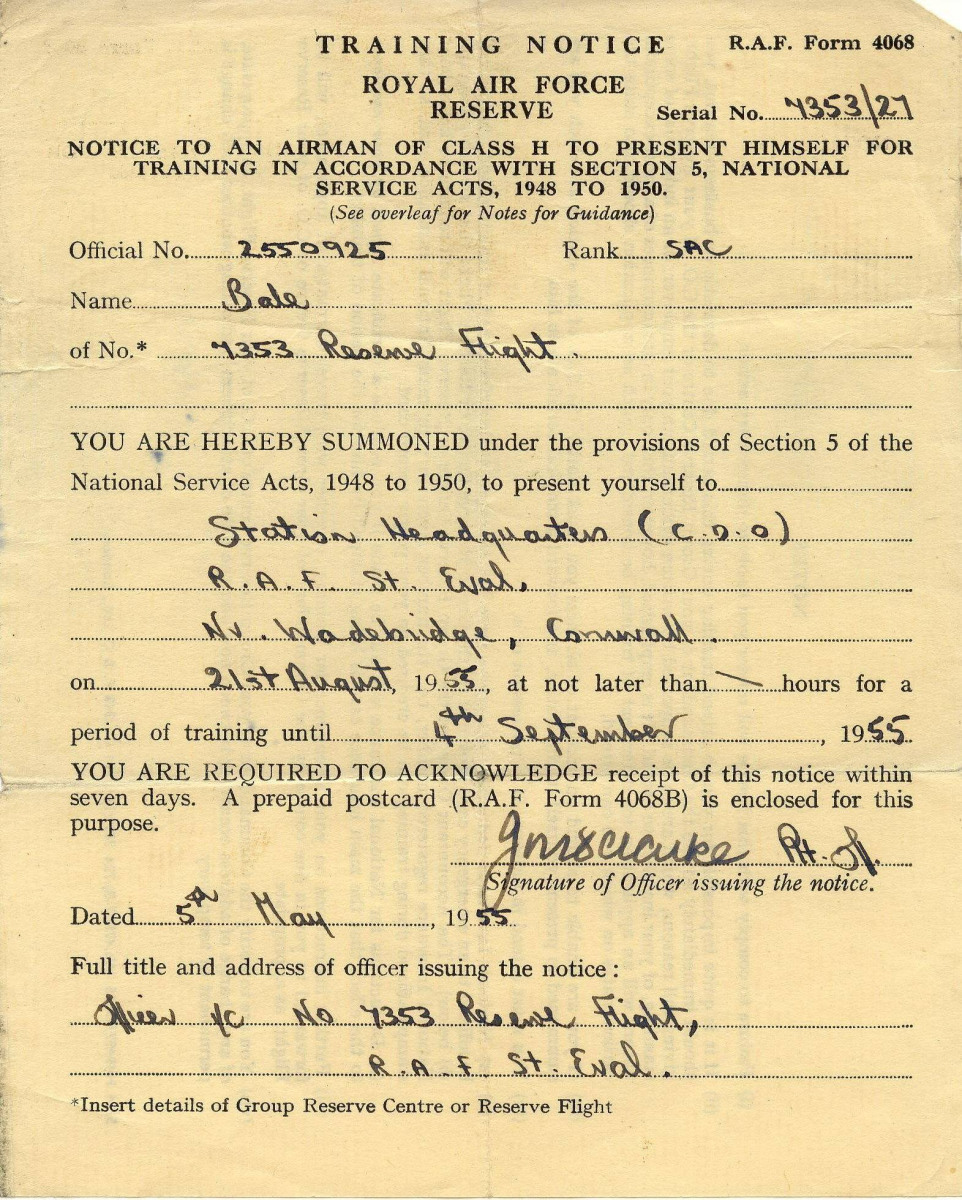 TRAINING NOTICE R.A.F. Form 4068
ROYAL AIR FORCE
RESERVE Serial No. 7353/27
NOTICE TO AN AIRMAN OF CLASS H TO PRESENT HIMSELF FOR
TRAINING IN ACCORDANCE WITH SECTION 5, NATIONAL
SERVICE ACTS, 1948 TO 1950.
(See overleaf for Notes for Guidance)
Official No. 2550925 Rank SAC
Name Bale
of No.* 7353 Reserve Flight.
YOU ARE HEREBY SUMMONED under the provisions of Section 5 of the
National Service Acts, 1948 to 1950, to present yourself to
Station Headquarters (C.D.O)
R.A.F. St. Eval,
Nr. Wadebridge, Cornwall.
on 21st August, 1955, at not later than — hours for a
period of training until 4th September, 1955
YOU ARE REQUIRED TO ACKNOWLEDGE receipt of this notice within
seven days. A prepaid postcard (R.A.F. Form 4068B) is enclosed for this
purpose.
Signature of Officer issuing the notice.
Dated 5th May, 1955
Full title and address of officer issuing the notice:
Officer i/c No 7353 Reserve Flight,
R.A.F. St. Eval.
*Insert details of Group Reserve Centre or Reserve Flight